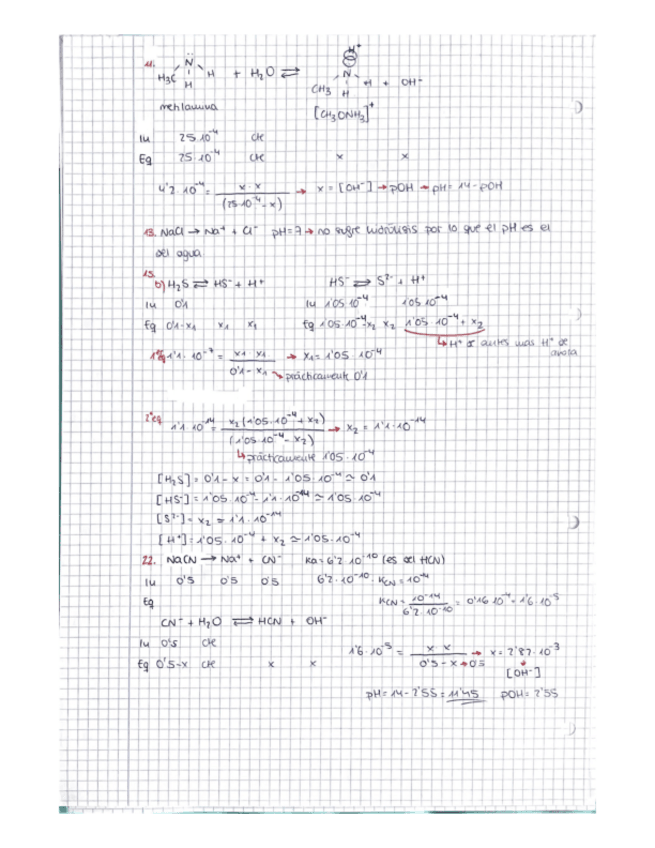 11. H₃C N̈ H H + H₂O ⇌ CH₃ N H H H⁺ + OH⁻
metilamina [CH₃ONH₃]⁺
Iu 25·10⁻⁴ cte
Eq 25·10⁻⁴ cte x x
4'2·10⁻⁴ = x·x / (25·10⁻⁴ - x) → x = [OH⁻] → pOH → pH = 14 - pOH
13. NaCl → Na⁺ + Cl⁻ pH = 7 → no sufre hidrólisis por lo que el pH es el
del agua
15.
b) H₂S ⇌ HS⁻ + H⁺ HS⁻ ⇌ S²⁻ + H⁺
Iu 0'1 Iu 1'05·10⁻⁴ 1'05·10⁻⁴
Eq 0'1-x₁ x₁ x₁ Eq 1'05·10⁻⁴-x₂ x₂ 1'05·10⁻⁴ + x₂
↳ H⁺ de antes más H⁺ de
ahora
1ºeq 1'1·10⁻⁷ = x₁·x₁ / 0'1 - x₁ → x₁ = 1'05·10⁻⁴
↘ prácticamente 0'1
2ºeq 1'1·10⁻¹⁴ = x₂(1'05·10⁻⁴ + x₂) / (1'05·10⁻⁴ - x₂) → x₂ = 1'1·10⁻¹⁴
↳ prácticamente 1'05·10⁻⁴
[H₂S] = 0'1 - x = 0'1 - 1'05·10⁻⁴ ≃ 0'1
[HS⁻] = 1'05·10⁻⁴ - 1'1·10⁻¹⁴ ≃ 1'05·10⁻⁴
[S²⁻] = x₂ ≃ 1'1·10⁻¹⁴
[H⁺] = 1'05·10⁻⁴ + x₂ ≃ 1'05·10⁻⁴
22. NaCN → Na⁺ + CN⁻ Ka = 6'2·10⁻¹⁰ (es del HCN)
Iu 0'5 0'5 0'5 6'2·10⁻¹⁰·KCN = 10⁻¹⁴
Eq KCN = 10⁻¹⁴ / 6'2·10⁻¹⁰ = 0'16·10⁻⁴ = 1'6·10⁻⁵
CN⁻ + H₂O ⇌ HCN + OH⁻
Iu 0'5 cte
Eq 0'5-x cte x x 1'6·10⁻⁵ = x·x / 0'5 - x → 0'5 → x = 2'87·10⁻³
[OH⁻]
pH = 14 - 2'55 = 11'45 pOH = 2'55